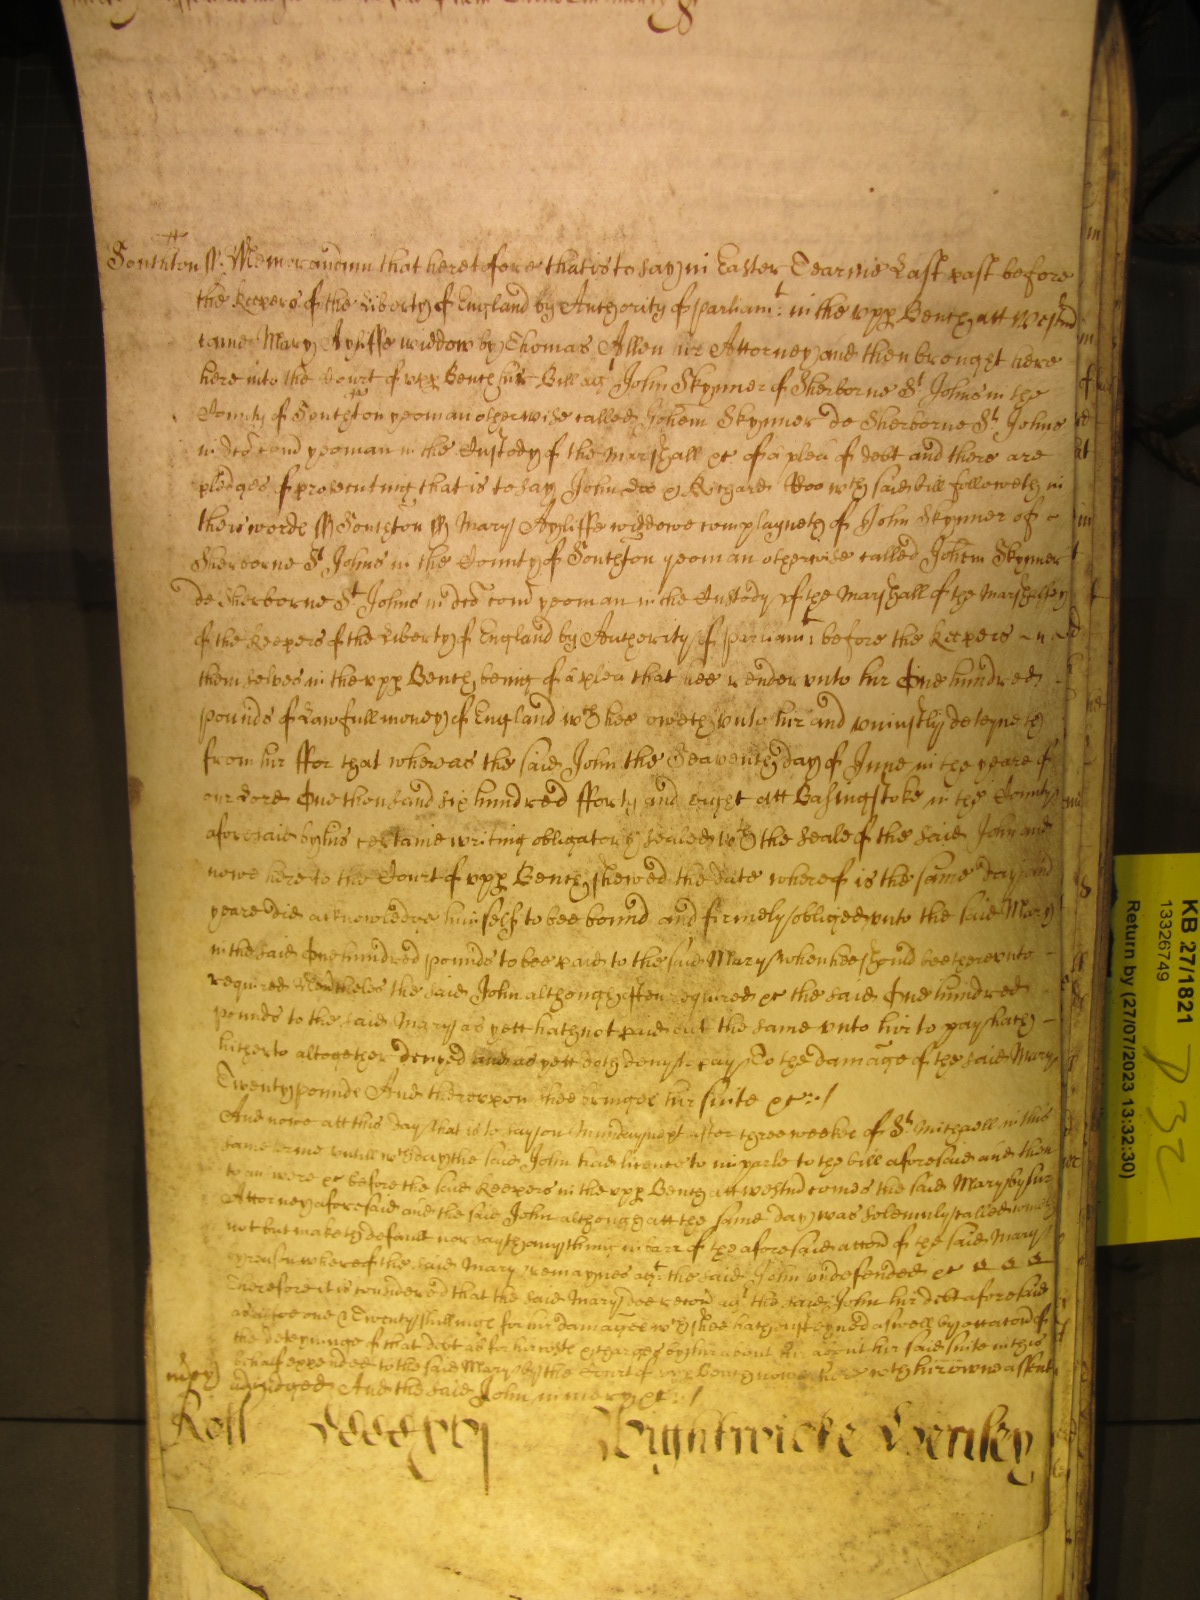 Southton ss. Memorandum that heretofore that is to say in Easter Tearme Last past before
the Keepers of the Liberty of England by Authority of parliamt: in the upp Bench att Westmd
came Mary Ayliffe widdow by Thomas Allen hir Attorney and then brought here
here into the Court of upp Bench hir Bill agt John Skynner of Sherborne St Johns in the
County of Southton yeoman otherwise called Johem Skynner de Sherborne St Johns
in dco Com yeoman in the Custody of the Marshall &c of a plea of debt and there are
pledges of prosecuting that is to say John Doo & Richard Roo wch said bill followeth in
theis words ss Southton ss Mary Ayliffe widdowe complayneth of John Skynner of
Sherborne St Johns in the County of Southton yeoman otherwise called Johem Skynner
de Sherborne St Johns in dco Com yeoman in the Custody of the Marshall of the Marshalsey
of the Keepers of the Liberty of England by Authority of parliamt before the Keepers
themselves in the upp Bench being of a plea that hee render unto hir One hundred
pounds of Lawfull money of England wch hee oweth unto hir and uniustly deteyneth
from hir ffor that wheras the said John the Seaventh day of June in the yeare of
our Lord One thousand six hundred fforty and eight att Basingstoke in the County
aforesaid by his certaine writing obligatory sealed wth the seale of the said John and
nowe here to the Court of upp Bench shewed the date wherof is the same day and
yeare did acknowledge himself to bee bound and firmely obliged unto the said Mary
in the said One hundred pounds to bee paid to the said Mary when hee should bee therevnto
required Neverthelesse the said John although often required &c the said One hundred
pounds to the said Mary as yett hath not paid but the same unto hir to pay hath
hitherto altogether denyed and as yett doth deny to pay To the damage of the said Mary
Twenty pounds And thereupon shee bringes hir suite &c
And nowe att this day that is to say on Munday next after three weekes of St Michaell in this
same terme untill wch day the said John had licence to imparle to the bill aforesaid and then
to answere &c before the said Keepers in the upp Bench att Westmd comes the said Mary by hir
Attorney aforesaid and the said John although att the same day was solemnly called cometh
not but maketh default nor sayth any thing in barr of the aforesaid accon of the said Mary
whereof the said Mary remaynes agt the said John undefended &c
Therefore it is considered that the said Mary doe recover agt the said John hir debt aforesaid
and alsoe one & Twenty shillings for hir damages wch shee hath susteyned aswell by occacon of
the deteyninge of that debt as for hir costs & charges by hir about hir suite in this
behalf expended to the said Mary by the Court of upp Bench nowe here wth hir owne assent
adiudged And the said John in mercy &c
mcy
Roll Wightwicke Henley
KB 27/1821
13326749
Return by (27/07/2023 13:32:30)
P 32